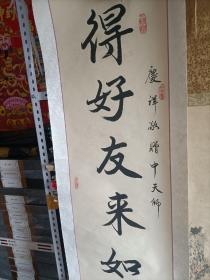 得好友来如
慶祥敬贈中天師